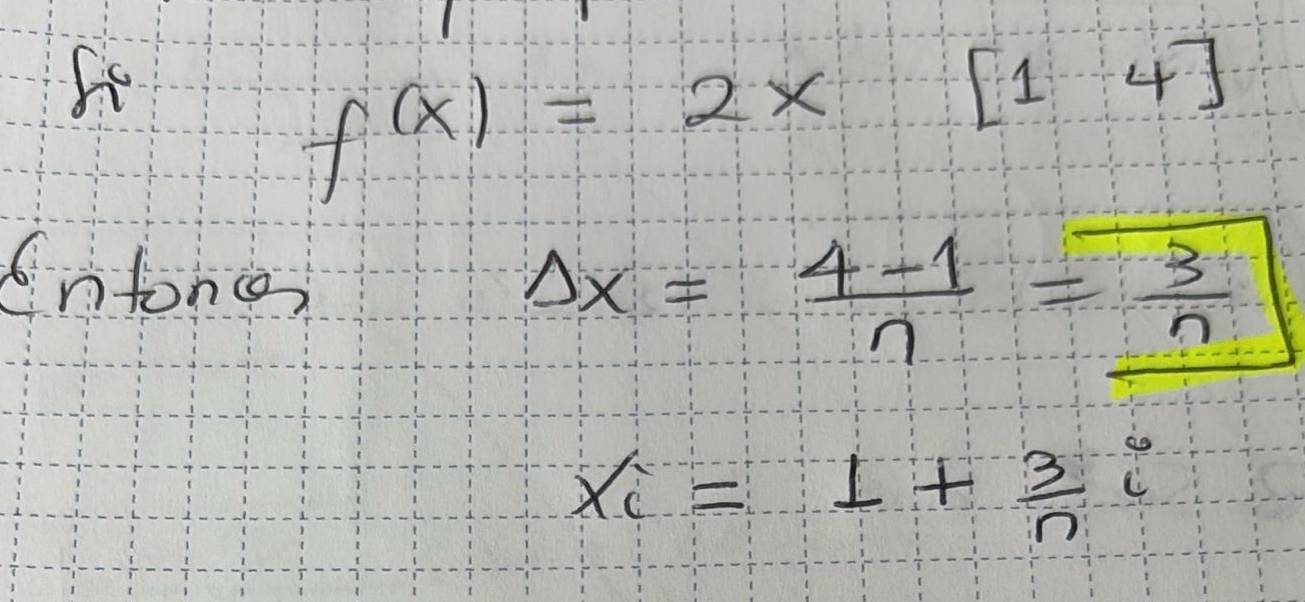 Si f(x) = 2x [1 4]
Entonces Δx = 4-1/n = 3/n
xi = 1 + 3/n i